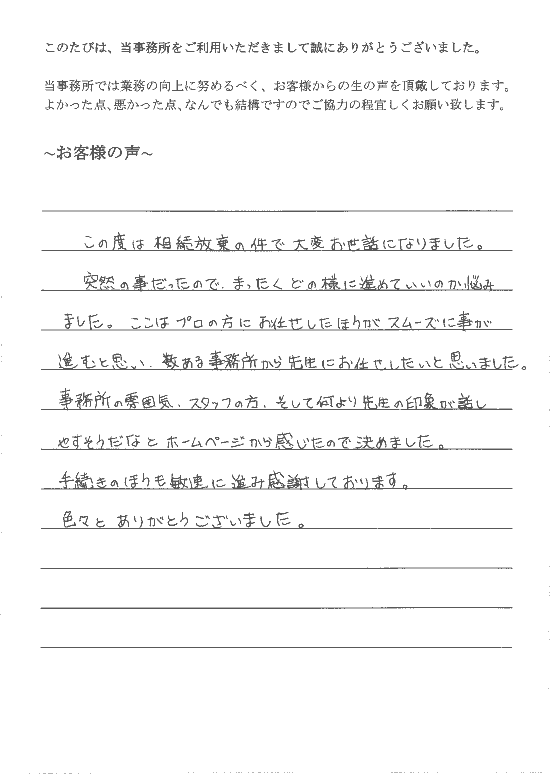 このたびは、当事務所をご利用いただきまして誠にありがとうございました。
当事務所では業務の向上に努めるべく、お客様からの生の声を頂戴しております。
よかった点、悪かった点、なんでも結構ですのでご協力の程宜しくお願い致します。
~お客様の声~
この度は 相続放棄の件で 大変お世話になりました。
突然の事だったので、まったく どの様に進めていいのか悩み
ました。ここは プロの方に お任せしたほうが スムーズに事が
進むと思い、数ある事務所から先生にお任せしたいと思いました。
事務所の雰囲気、スタッフの方、そして何より先生の印象が話し
やすそうだなと ホームページから感じたので決めました。
手続きのほうも敏速に進み感謝しております。
色々と ありがとうございました。